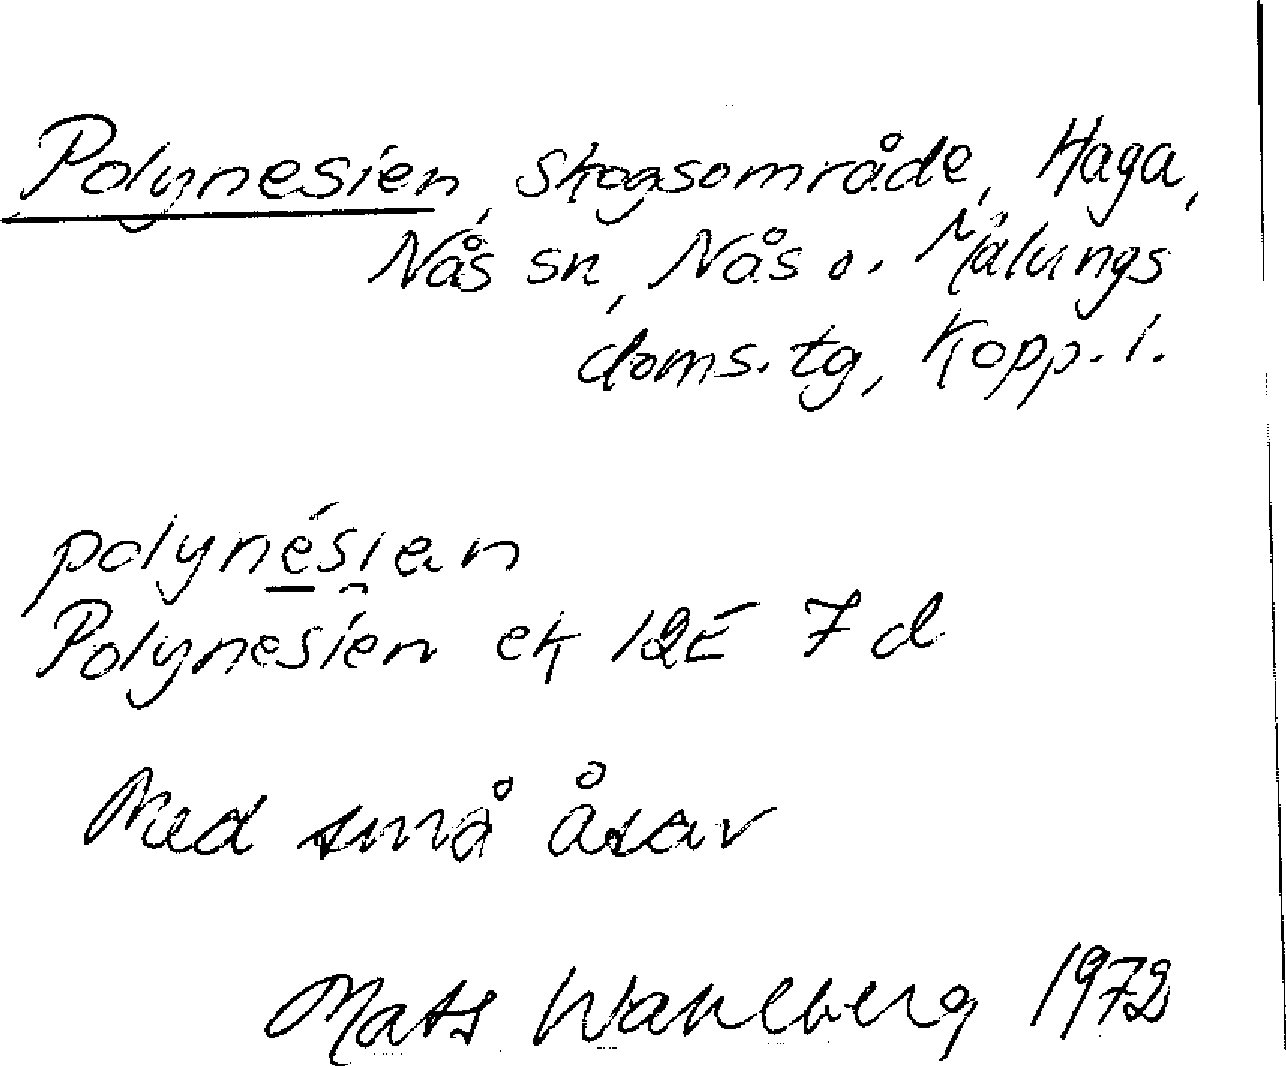 Polynesien, skogsområde, Haga,
Nås sn, Nås o. Malungs
doms. tg, Kopp. l.
polynési̯en
Polynesien ek 12E 7d
Med små åsar
Mats Wahlberg 1972